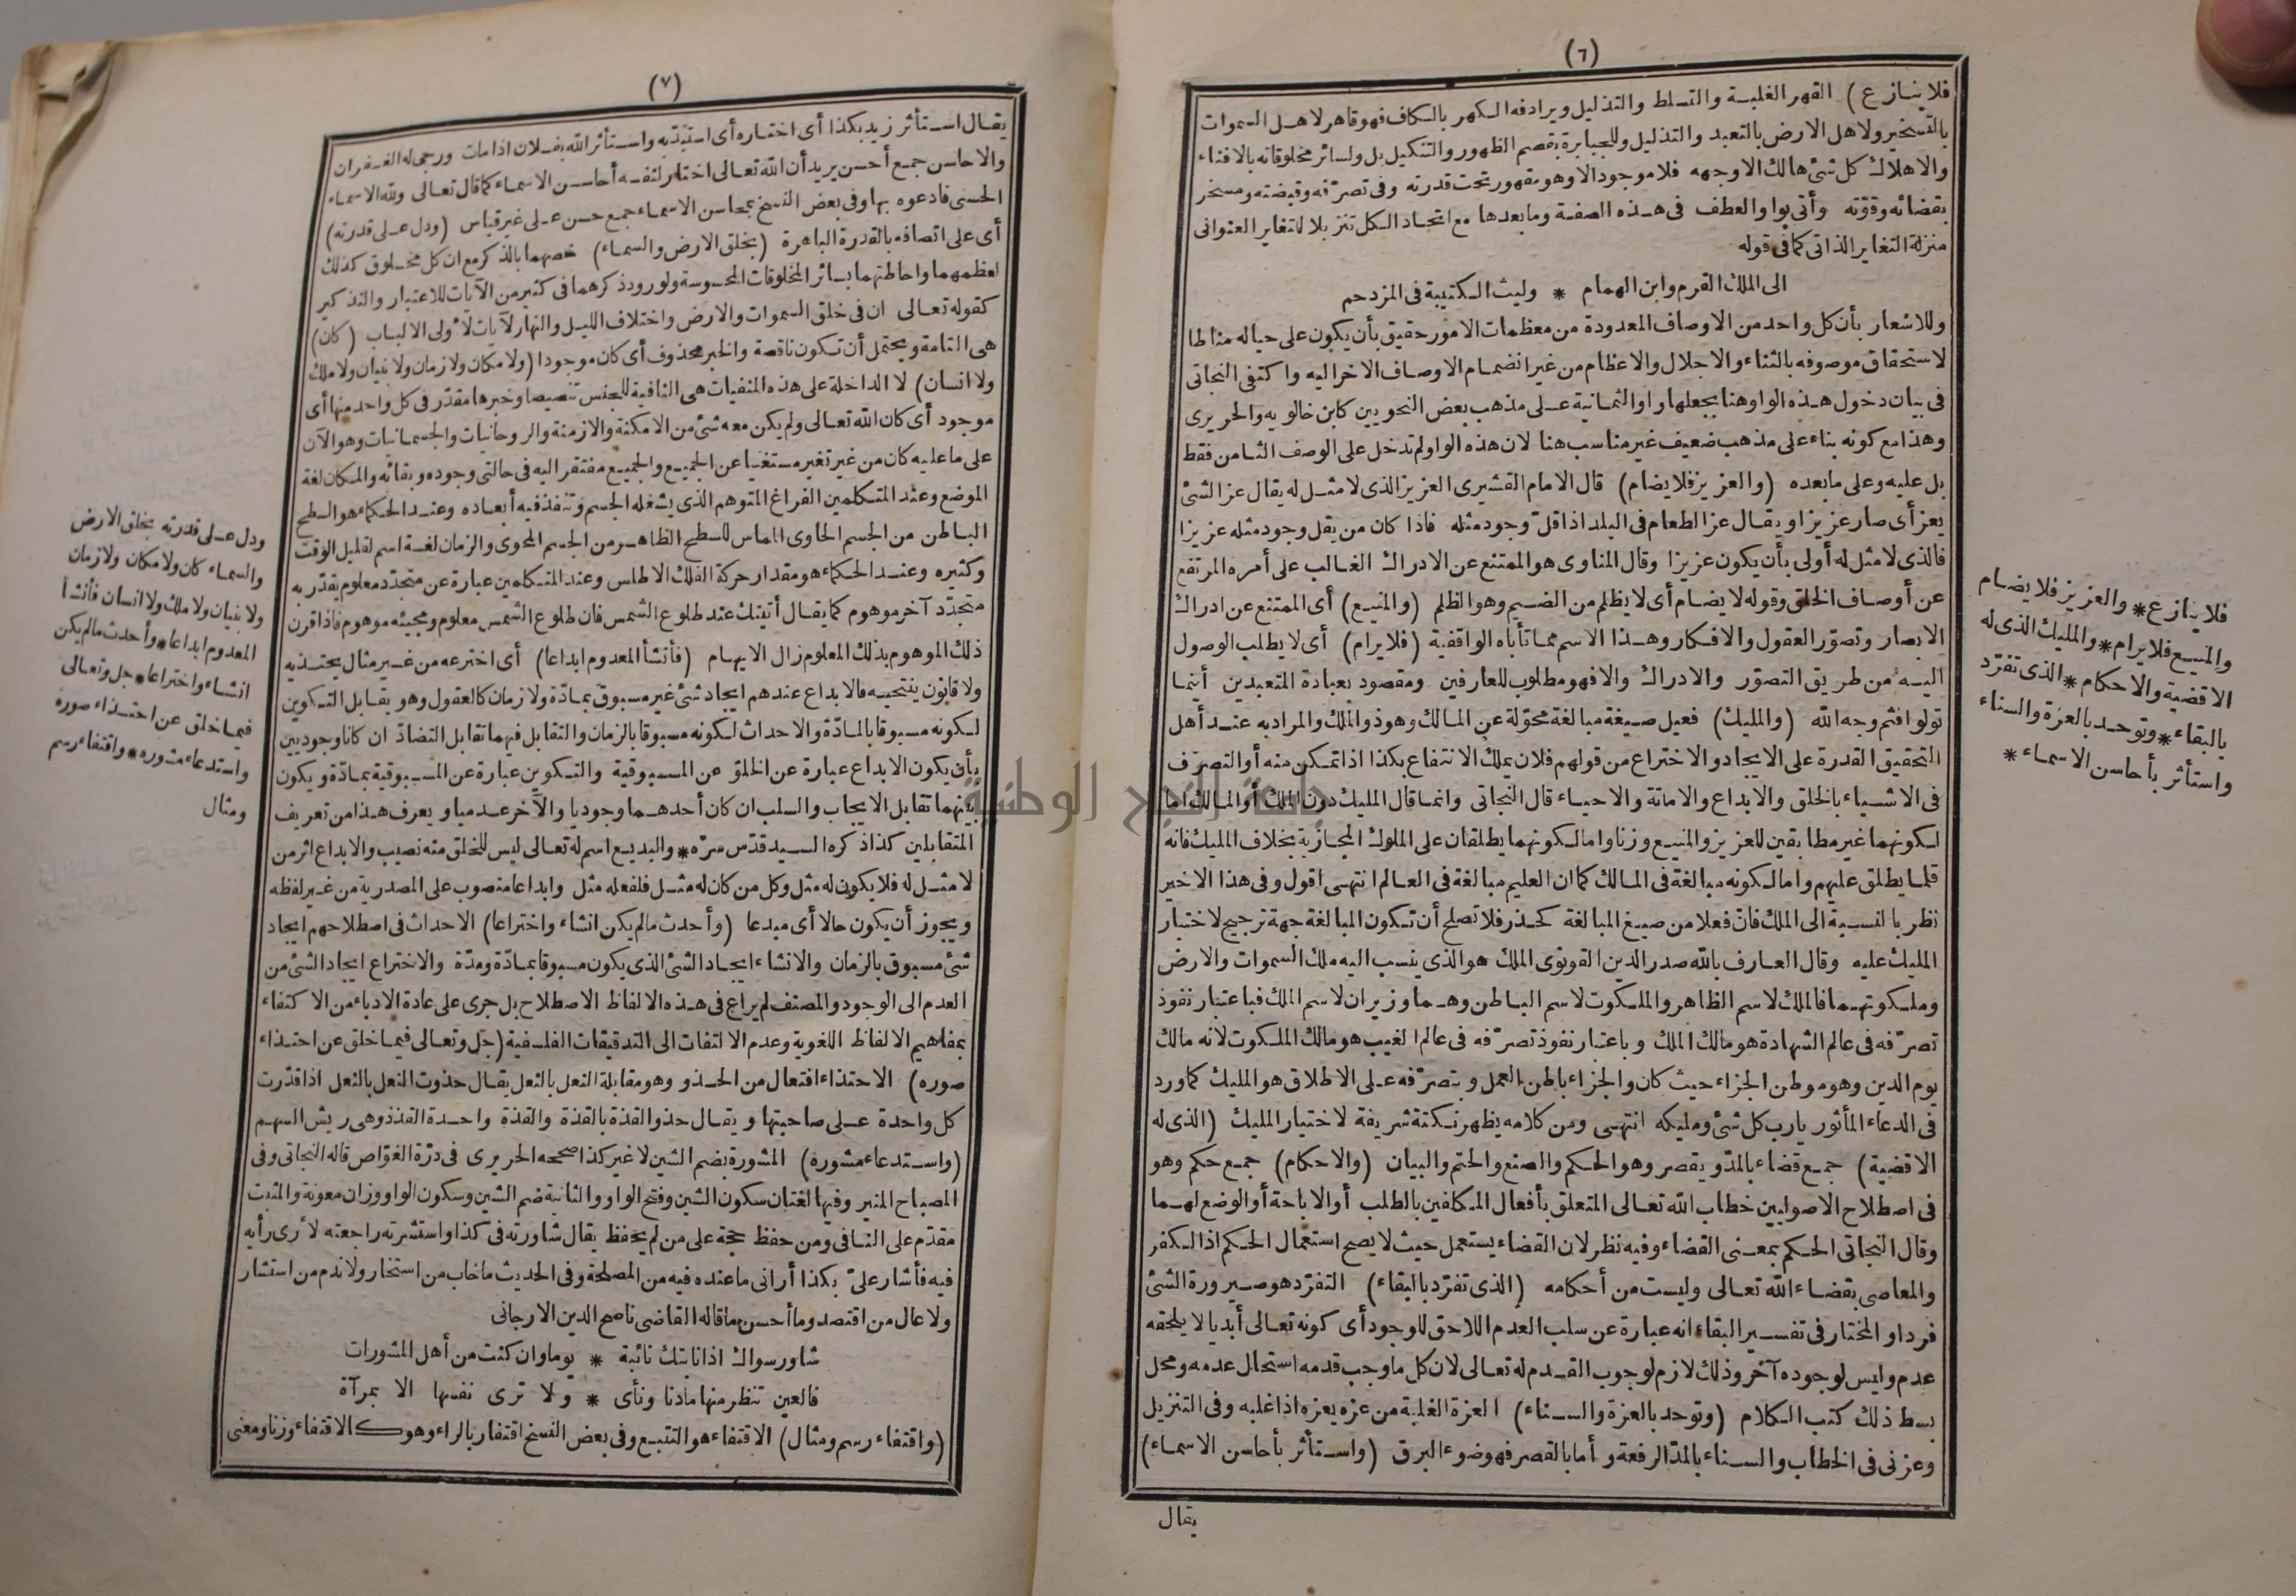 (٦)
فلا ينازع) القهر الغلبة والتسلط والتذليل ويرادفه الكهر بالكاف فهو قاهر لاهل السموات
بالتسخير ولاهل الارض بالتعبد والتذليل وللجبابرة بقصم الظهور والتنكيل بل ولسائر مخلوقاته بالافناء
والاهلاك كل شئ هالك الا وجهه فلا موجود الا وهو مقهور تحت قدرته وفى تصرّفه وقبضته ومسخر
بقضائه وقوّته وأتى بواو العطف فى هذه الصفة وما بعدها مع اتحاد الكل تنزيلا للتغاير العنوانى
منزلة التغاير الذاتى كما فى قوله
الى الملك القرم وابن الهمام * وليث الكتيبة فى المزدحم
وللاشعار بأن كل واحد من الاوصاف المعدودة من معظمات الامور حقيق بأن يكون على حياله مناطا
لاستحقاق موصوفه بالثناء والاجلال والاعظام من غير انضمام الاوصاف الاخر اليه واكتفى النجاتى
فى بيان دخول هذه الواو هنا بجعلها واو الثمانية على مذهب بعض النحويين كابن خالويه والحريرى
وهذا مع كونه بناء على مذهب ضعيف غير مناسب هنا لان هذه الواو لم تدخل على الوصف الثامن فقط
بل عليه وعلى ما بعده (والعزيز فلا يضام) قال الامام القشيرى العزيز الذى لا مثل له يقال عز الشئ
يعز أى صار عزيزا ويقال عز الطعام فى البلد اذا قلّ وجود مثله فاذا كان من يقل وجود مثله عزيزا
فالذى لا مثل له أولى بأن يكون عزيزا وقال المناوى هو الممتنع عن الادراك الغالب على أمره المرتفع
عن أوصاف الخلق وقوله لا يضام أى لا يظلم من الضيم وهو الظلم (والمنيع) أى الممتنع عن ادراك
الابصار وتصوّر العقول والافكار وهذا الاسم مما تأباه الواقفية (فلا يرام) أى لا يطلب الوصول
اليه من طريق التصوّر والادراك والا فهو مطلوب للعارفين ومقصود بعبادة المتعبدين أينما
تولوا فثم وجه الله (والمليك) فعيل صيغة مبالغة محوّلة عن المالك وهو ذو الملك والمراد به عند أهل
التحقيق القدرة على الايجاد والاختراع من قولهم فلان يملك الانتفاع بكذا اذا تمكن منه أو التصرّف
فى الاشياء بالخلق والابداع والاماتة والاحياء قال النجاتى وانما قال المليك دون الملك أو المالك اما
لكونهما غير مطابقين للعزيز والمنيع وزنا واما لكونهما يطلقان على الملوك المجازية بخلاف المليك فانه
قلما يطلق عليهم واما لكونه مبالغة فى المالك كما ان العليم مبالغة فى العالم انتهى اقول وفى هذا الاخير
نظر بالنسبة الى الملك فانّ فعلا من صيغ المبالغة كحذر فلا تصلح أن تكون المبالغة جهة ترجيح لاختيار
المليك عليه وقال العارف بالله صدر الدين القونوى الملك هو الذى ينسب اليه ملك السموات والارض
وملكوتهما فالملك لاسم الظاهر والملكوت لاسم الباطن وهما وزيران لاسم الملك فباعتبار نفوذ
تصرّفه فى عالم الشهادة هو مالك الملك وباعتبار نفوذ تصرّفه فى عالم الغيب هو مالك الملكوت لانه مالك
يوم الدين وهو موطن الجزاء حيث كان والجزاء باطن العمل وبتصرّفه على الاطلاق هو المليك كما ورد
فى الدعاء المأثور يا رب كل شئ ومليكه انتهى ومن كلامه يظهر نكتة شريفة لاختيار المليك (الذى له
الاقضية) جمع قضاء بالمدّ ويقصر وهو الحكم والصنع والحتم والبيان (والاحكام) جمع حكم وهو
فى اصطلاح الاصوليين خطاب الله تعالى المتعلق بأفعال المكلفين بالطلب أو الاباحة أو الوضع لهما
وقال النجاتى الحكم بمعنى القضاء وفيه نظر لان القضاء يستعمل حيث لا يصح استعمال الحكم اذ الكفر
والمعاصى بقضاء الله تعالى وليست من أحكامه (الذى تفرّد بالبقاء) التفرّد هو صيرورة الشئ
فردا والمختار فى تفسير البقاء انه عبارة عن سلب العدم اللاحق للوجود أى كونه تعالى أبديا لا يلحقه
عدم وليس لوجوده آخر وذلك لازم لوجوب القدم له تعالى لان كل ما وجب قدمه استحال عدمه ومحل
بسط ذلك كتب الكلام (وتوحد بالعزة والسناء) العزة الغلبة من عزه يعزه اذا غلبه وفى التنزيل
وعزنى فى الخطاب والسناء بالمدّ الرفعة وأما بالقصر فهو ضوء البرق (واستأثر بأحاسن الاسماء)
يقال
فلا ينازع * والعزيز فلا يضام
والمنيع فلا يرام * والمليك الذى له
الاقضية والاحكام * الذى تفرّد
بالبقاء * وتوحد بالعزة والسناء
واستأثر بأحاسن الاسماء *
(٧)
يقال استأثر زيد بكذا أى اختاره أى استبدّ به واستأثر الله بفلان اذا مات ورجى له الغفران
والاحاسن جمع أحسن يريد أن الله تعالى اختار لنفسه أحاسن الاسماء كما قال تعالى ولله الاسماء
الحسنى فادعوه بها وفى بعض النسخ بمحاسن الاسماء جمع حسن على غير قياس (ودل على قدرته)
أى على اتصافه بالقدرة الباهرة (بخلق الارض والسماء) خصهما بالذكر مع ان كل مخلوق كذلك
لعظمهما واحاطتهما بسائر المخلوقات المحسوسة ولورود ذكرهما فى كثير من الآيات للاعتبار والتذكير
كقوله تعالى ان فى خلق السموات والارض واختلاف الليل والنهار لآيات لأولى الالباب (كان)
هى التامة ويحتمل أن تكون ناقصة والخبر محذوف أى كان موجودا (ولا مكان ولا زمان ولا بنيان ولا ملك
ولا انسان) لا الداخلة على هذه المنفيات هى النافية للجنس تنصيصا وخبرها مقدّر فى كل واحد منها أى
موجود أى كان الله تعالى ولم يكن معه شئ من الامكنة والازمنة والروحانيات والجسمانيات وهو الآن
على ما عليه كان من غير تغير مستغنيا عن الجميع والجميع مفتقر اليه فى حالتى وجوده وبقائه والمكان لغة
الموضع وعند المتكلمين الفراغ المتوهم الذى يشغله الجسم وتنفذ فيه أبعاده وعند الحكماء هو السطح
الباطن من الجسم الحاوى المماس للسطح الظاهر من الجسم المحوى والزمان لغة اسم لقليل الوقت
وكثيره وعند الحكماء هو مقدار حركة الفلك الاطلس وعند المتكلمين عبارة عن متجدّد معلوم يقدّر به
متجدّد آخر موهوم كما يقال أتيتك عند طلوع الشمس فان طلوع الشمس معلوم ومجيئه موهوم فاذا قرن
ذلك الموهوم بذلك المعلوم زال الايهام (فأنشأ المعدوم ابداعا) أى اخترعه من غير مثال يحتذيه
ولا قانون ينتحيه فالابداع عندهم ايجاد شئ غير مسبوق بمادّة ولا زمان كالعقول وهو يقابل التكوين
لكونه مسبوقا بالمادّة والاحداث لكونه مسبوقا بالزمان والتقابل فيهما تقابل التضادّ ان كانا وجوديين
بأن يكون الابداع عبارة عن الخلق عن المسبوقية والتكوين عبارة عن المسبوقية بمادّة ويكون
بينهما تقابل الايجاب والسلب ان كان أحدهما وجوديا والآخر عدميا ويعرف هذا من تعريف
المتقابلين كذا ذكره السيد قدّس سرّه * والبديع اسم له تعالى ليس للخلق منه نصيب والابداع اثر من
لا مثل له فلا يكون له مثل وكل من كان له مثل فلفعله مثل وابداعا منصوب على المصدرية من غير لفظه
ويجوز أن يكون حالا أى مبدعا (وأحدث ما لم يكن انشاء واختراعا) الاحداث فى اصطلاحهم ايجاد
شئ مسبوق بالزمان والانشاء ايجاد الشئ الذى يكون مسبوقا بمادّة ومدّة والاختراع ايجاد الشئ من
العدم الى الوجود والمصنف لم يراع فى هذه الالفاظ الاصطلاح بل جرى على عادة الادباء من الاكتفاء
بمفاهيم الالفاظ اللغوية وعدم الالتفات الى التدقيقات الفلسفية (جل وتعالى فيما خلق عن احتذاء
صوره) الاحتذاء افتعال من الحذو وهو مقابلة النعل بالنعل يقال حذوت النعل بالنعل اذا قدّرت
كل واحدة على صاحبتها ويقال حذو القذة بالقذة والقذة واحدة القذذ وهى ريش السهم
(واستدعاء مشوره) المشورة بضم الشين لا غير كذا صححه الحريرى فى درّة الغوّاص قاله النجاتى وفى
المصباح المنير وفيها لغتان سكون الشين وفتح الواو والثانية ضم الشين وسكون الواو وزان معونة والمثبت
مقدّم على النافى ومن حفظ حجة على من لم يحفظ يقال شاورته فى كذا واستشرته راجعته لأرى رأيه
فيه فأشار علىّ بكذا أرانى ما عنده فيه من المصلحة وفى الحديث ما خاب من استخار ولا ندم من استشار
ولا عال من اقتصد وما أحسن ما قاله القاضى ناصح الدين الارجانى
شاور سواك اذا نابتك نائبة * يوما وان كنت من أهل المشورات
فالعين تنظر منها ما دنا ونأى * ولا ترى نفسها الا بمرآة
(واقتفاء رسم ومثال) الاقتفاء هو التتبع وفى بعض النسخ اقتفار بالراء وهو كالاقتفاء وزنا ومعنى
ودل على قدرته بخلق الارض
والسماء كان ولا مكان ولا زمان
ولا بنيان ولا ملك ولا انسان فأنشأ
المعدوم ابداعا * وأحدث ما لم يكن
انشاء واختراعا * جل وتعالى
فيما خلق عن احتذاء صوره
واستدعاء مشوره * واقتفاء رسم
ومثال
جامعة النجاح الوطنية